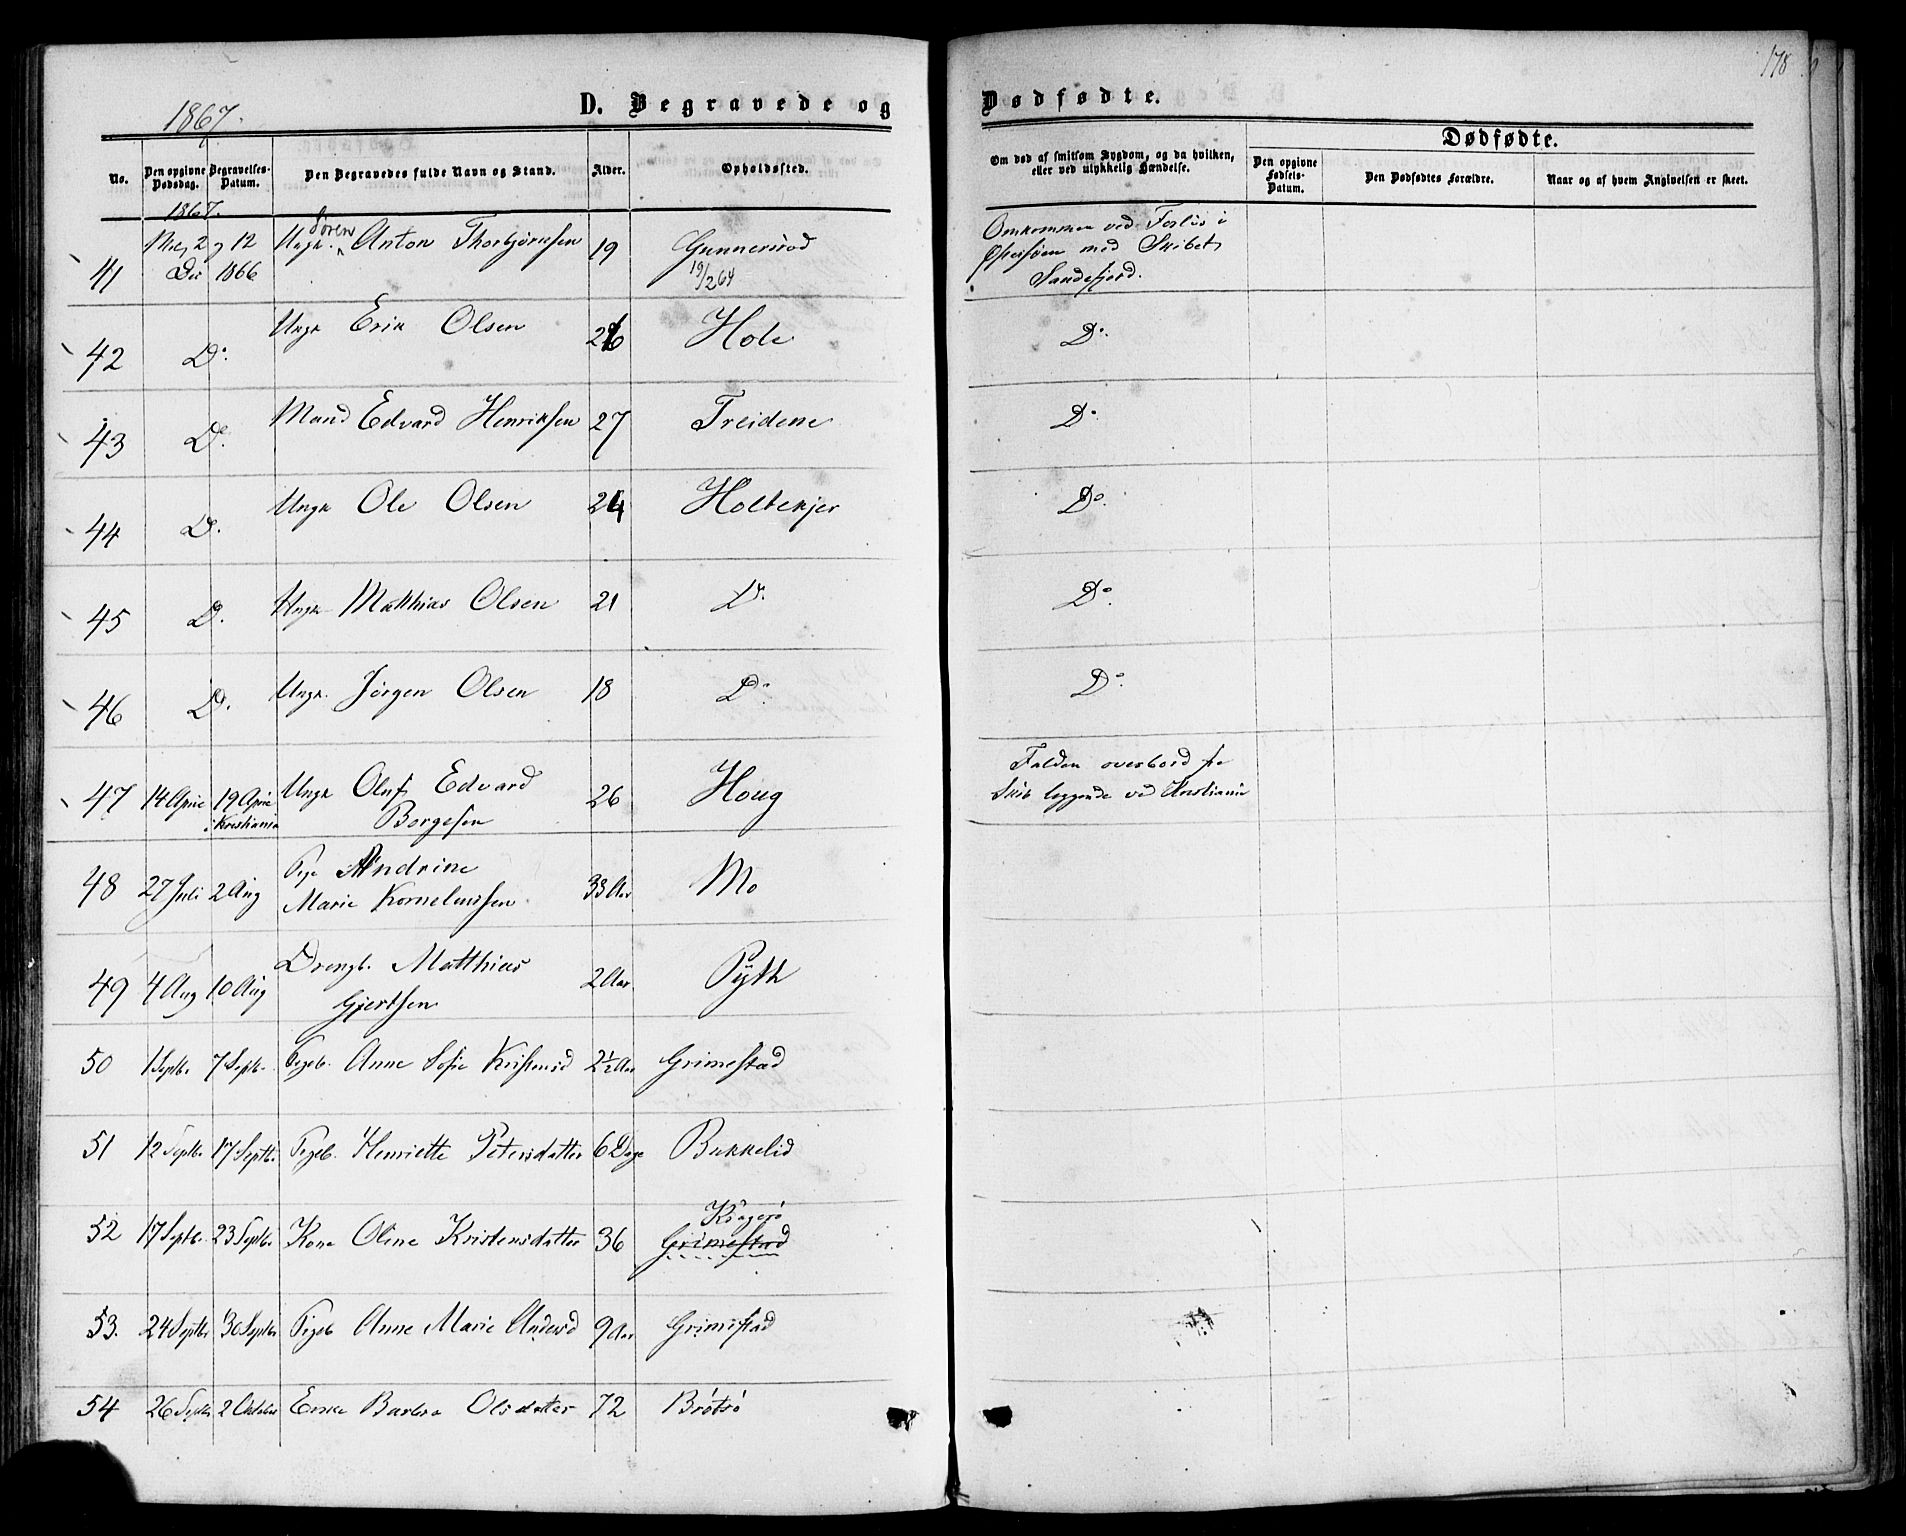 178
1867.
D. Begravede og Dødfødte.
No.
Den opgivne Dødsdag.
Begravelses-Datum.
Den Begravedes fulde Navn og Stand.
Alder.
Opholdssted.
Om død af smitsom Sygdom, og da hvilken, eller ved ulykkelig Hændelse.
Dødfødte.
Den opgivne Fødsels-Datum.
Den Dødfødtes Forældre.
Naar og af hvem Angivelsen er skeet.
1867.
41 2 12 Dec 1866 Ungk. Sören Anton Thorbjörnsen 19 Gunnersröd 19/2 64 Omkommen ved Forlis i
Østersøen med Skibet
Sandefjord.
42 Do. Ungk Erik Olsen 26 Hole Do.
43 Do. Mand Edvard Henriksen 27 Treidene Do.
44 Do. Ungk Ole Olsen 24 Holtekjer Do.
45 Do. Ungk. Matthias Olsen 21 Do. Do.
46 Do. Ungk. Jörgen Olsen 18 Do. Do.
47 14 April 19 April i Kristiania Ungk Oluf Edvard
Borgesen 26 Houg Falden overbord fra
Skib liggende ved Christiania
48 27 Juli 2 Aug Pige Andrine
Marie Korneliussen 33 Aar Mo
49 4 Aug 10 Aug Drengb. Matthias
Gjertsen 2 Aar Pyth
50 1 Septb. 7 Septb. Pigeb. Anne Sofie Kristensd 2½ Aar Grimestad
51 12 Septb. 17 Septb. Pigeb. Henriette Petersdatter 6 Dage Bukkelid
52 17 Septb. 23 Septb. Kone Oline Kristensdatter 36 Kragerö
Grimestad
53. 24 Septbr 30 Septbr Pigeb Anne Marie Andersd 9 Aar Grimestad
54 26 Septbr 2 Oktober Enke Barbra Olsdatter 72 Brötsö